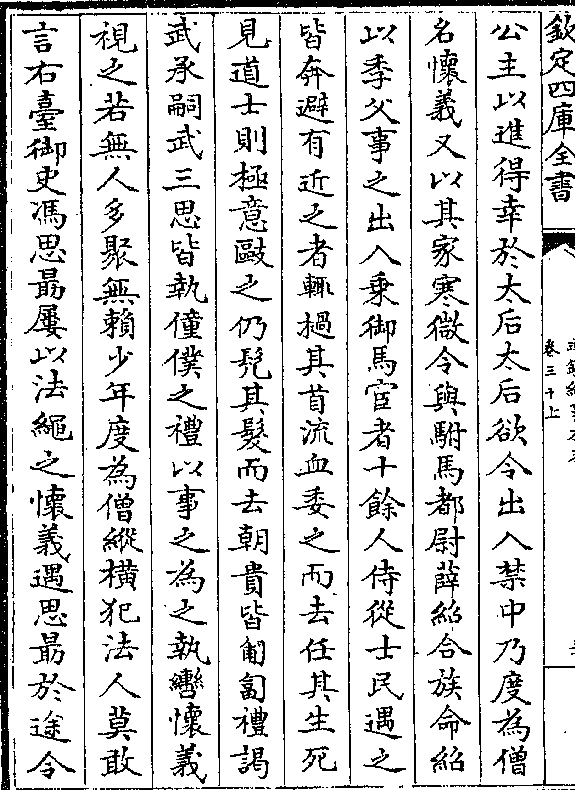 欽定四庫全書
卷三十上
公主以進得幸於太后太后欲令出入禁中乃度為僧
名懷義又以其家寒微令與駙馬都尉薛紹合族命紹
以季父事之出入乗御馬宦者十餘人侍從士民遇之
皆奔避有近之者輒撾其首流血委之而去任其生死
見道士則極意毆之仍髠其髮而去朝貴皆匍匐禮謁
武承嗣武三思皆執僮僕之禮以事之為之執轡懷義
視之若無人多聚無賴少年度為僧縱橫犯法人莫敢
言右臺御史馮思朂屢以法繩之懷義遇思朂於途令